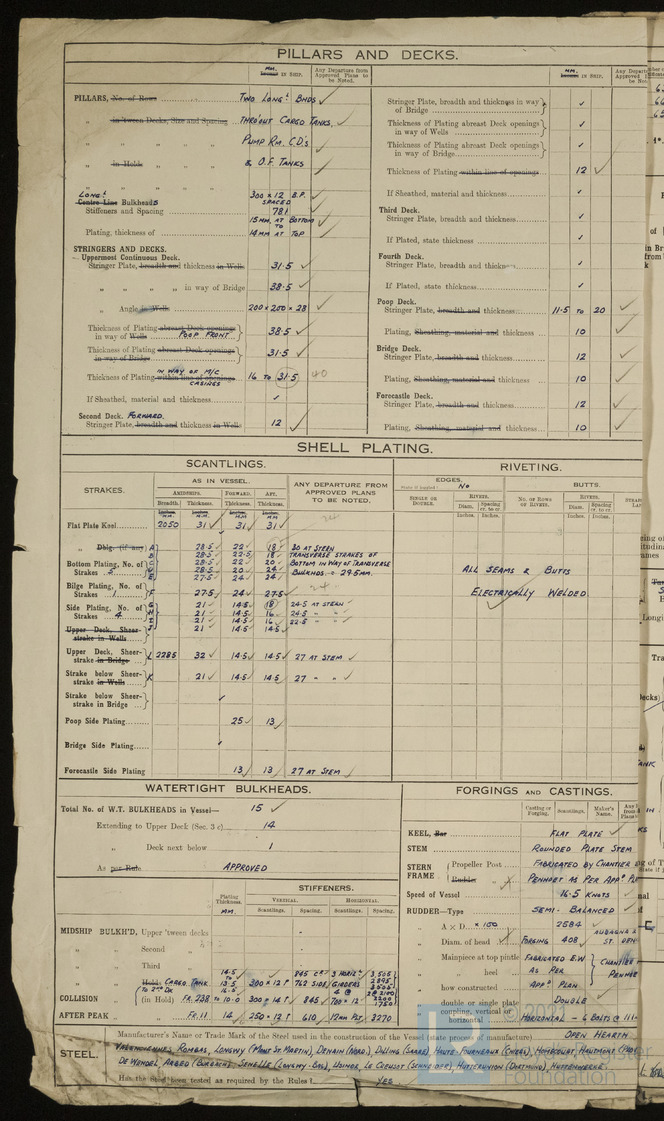 PILLARS AND DECKS.
MM. Inches IN SHIP.
Any Departure from Approved Plans to be Noted.
PILLARS, No. of Rows TWO LONGL BHDS ✓
„ in 'tween Decks, Size and Spacing THRO'OUT CARGO TANKS, ✓
„ „ „ „ PUMP RM. C.D's
„ in Holds & O.F. TANKS
„ „ „ „
LONGL
Centre Line Bulkheads 300 × 12 B.P.
Stiffeners and Spacing SPACED 781
Plating, thickness of 15 MM. AT BOTTOM TO 14 MM AT TOP
STRINGERS AND DECKS.
Uppermost Continuous Deck.
Stringer Plate, breadth and thickness in Wells 31·5 ✓
„ „ „ „ in way of Bridge 38·5 ✓
„ Angle in Wells 200 × 200 × 28 ✓
Thickness of Plating abreast Deck openings in way of Wells POOP FRONT 38·5 ✓
Thickness of Plating abreast Deck openings in way of Bridge 31·5 ✓
Thickness of Plating within line of openings IN WAY OF M/C CASINGS 16 TO 31·5 40
If Sheathed, material and thickness ✓
Second Deck. FORWARD.
Stringer Plate, breadth and thickness in Wells 12 ✓
MM. Inches IN SHIP.
Stringer Plate, breadth and thickness in way of Bridge ✓
Thickness of Plating abreast Deck openings in way of Wells ✓
Thickness of Plating abreast Deck openings in way of Bridge ✓
Thickness of Plating within line of openings 12 ✓
If Sheathed, material and thickness ✓
Third Deck.
Stringer Plate, breadth and thickness ✓
If Plated, state thickness ✓
Fourth Deck.
Stringer Plate, breadth and thickness ✓
If Plated, state thickness ✓
Poop Deck.
Stringer Plate, breadth and thickness 11·5 to 20 ✓
Plating, Sheathing, material and thickness 10 ✓
Bridge Deck.
Stringer Plate, breadth and thickness 12 ✓
Plating, Sheathing, material and thickness 10 ✓
Forecastle Deck.
Stringer Plate, breadth and thickness 12 ✓
Plating, Sheathing, material and thickness 10 ✓
SHELL PLATING.
SCANTLINGS.
STRAKES. AS IN VESSEL. ANY DEPARTURE FROM APPROVED PLANS TO BE NOTED.
AMIDSHIPS. FORWARD. AFT.
Breadth. Thickness. Thickness. Thickness.
Flat Plate Keel 2050 31 ✓ 31 ✓ 31 ✓
„ Dblg. (if any) A 28·5 22 18 30 AT STERN
B 28·5 22·5 18 TRANSVERSE STRAKES OF
Bottom Plating, No. of Strakes 5 C 28·5 22 20 BOTTOM IN WAY OF TRANSVERSE
D 28·5 20 24 BULKHDS = 29·5MM.
E 27·5 24 24
Bilge Plating, No. of Strakes 1 F 27·5 24 27·5
Side Plating, No. of Strakes 4 G 21 14·5 18 24·5 AT STERN
H 21 14·5 16 24·5 „ „
I 21 14·5 16 22·5 „ „
Upper Deck, Sheerstrake in Wells J 21 14·5 14·5
Upper Deck, Sheerstrake in Bridge L 2285 32 ✓ 14·5 14·5 27 AT STEM ✓
Strake below Sheerstrake in Wells K 21 14·5 14·5 27 „ „ ✓
Strake below Sheerstrake in Bridge ✓
Poop Side Plating 25 13
Bridge Side Plating ✓
Forecastle Side Plating 13 13 27 AT STEM ✓
RIVETING.
EDGES. No
BUTTS.
SINGLE OR DOUBLE. RIVETS. Diam. Spacing cr. to cr. Inches. Inches.
NO. OF ROWS OF RIVETS. RIVETS. Diam. Spacing cr. to cr. Inches. Inches.
ALL SEAMS & BUTTS
ELECTRICALLY WELDED
WATERTIGHT BULKHEADS.
Total No. of W.T. BULKHEADS in Vessel— 15 ✓
Extending to Upper Deck (Sec. 3 c) 14
„ Deck next below 1
As per Rule APPROVED
Plating Thickness. MM.
STIFFENERS.
VERTICAL. HORIZONTAL.
Scantlings. Spacing. Scantlings. Spacing.
MIDSHIP BULKH'D, Upper 'tween decks
„ „ Second „
„ „ Third „
„ „ Holds CARGO TANK 14·5 13·5 16·5 300 × 12 762 SIDE 3 HORIZL GIRDERS
COLLISION „ (in Hold) FR. 238 TO 10·0 300 × 14 845 700 × 12
AFTER PEAK „ „ FR. 11 14 250 × 12 610 12MM PLT 3270
FORGINGS AND CASTINGS.
Casting or Forging. Scantlings. Maker's Name.
KEEL, Bar FLAT PLATE ✓
STEM ROUNDED PLATE STEM
STERN FRAME Propeller Post FABRICATED BY CHANTIER
Rudder „ PENHOET AS PER APPD
Speed of Vessel 16·5 KNOTS ✓
RUDDER—Type SEMI-BALANCED ✓
„ A × D × 100 2584 ✓
„ Diam. of head FORGING 408
„ Mainpiece at top pintle FABRICATED E.W
„ „ heel AS PER
„ how constructed APPD PLAN
„ double or single plate DOUBLE
„ coupling, vertical or horizontal HORIZONTAL — 6 BOLTS @ 111
STEEL. Manufacturer's Name or Trade Mark of the Steel used in the construction of the Vessel (state process of manufacture) OPEN HEARTH
ROMBAS, LONGWY (MONT ST MARTIN), DENAIN (NORD), DILLING (SAARE), HAUTS-FOURNEAUX (CHIERS), HOMECOURT, HAUTMONT
DE WENDEL, ARBED (BURBACH), SENELLE (LONGWY-BAS), USINOR, LE CREUSOT (SCHNEIDER), HUTTERUNION (DORTMUND)
Has the Steel been tested as required by the Rules? YES